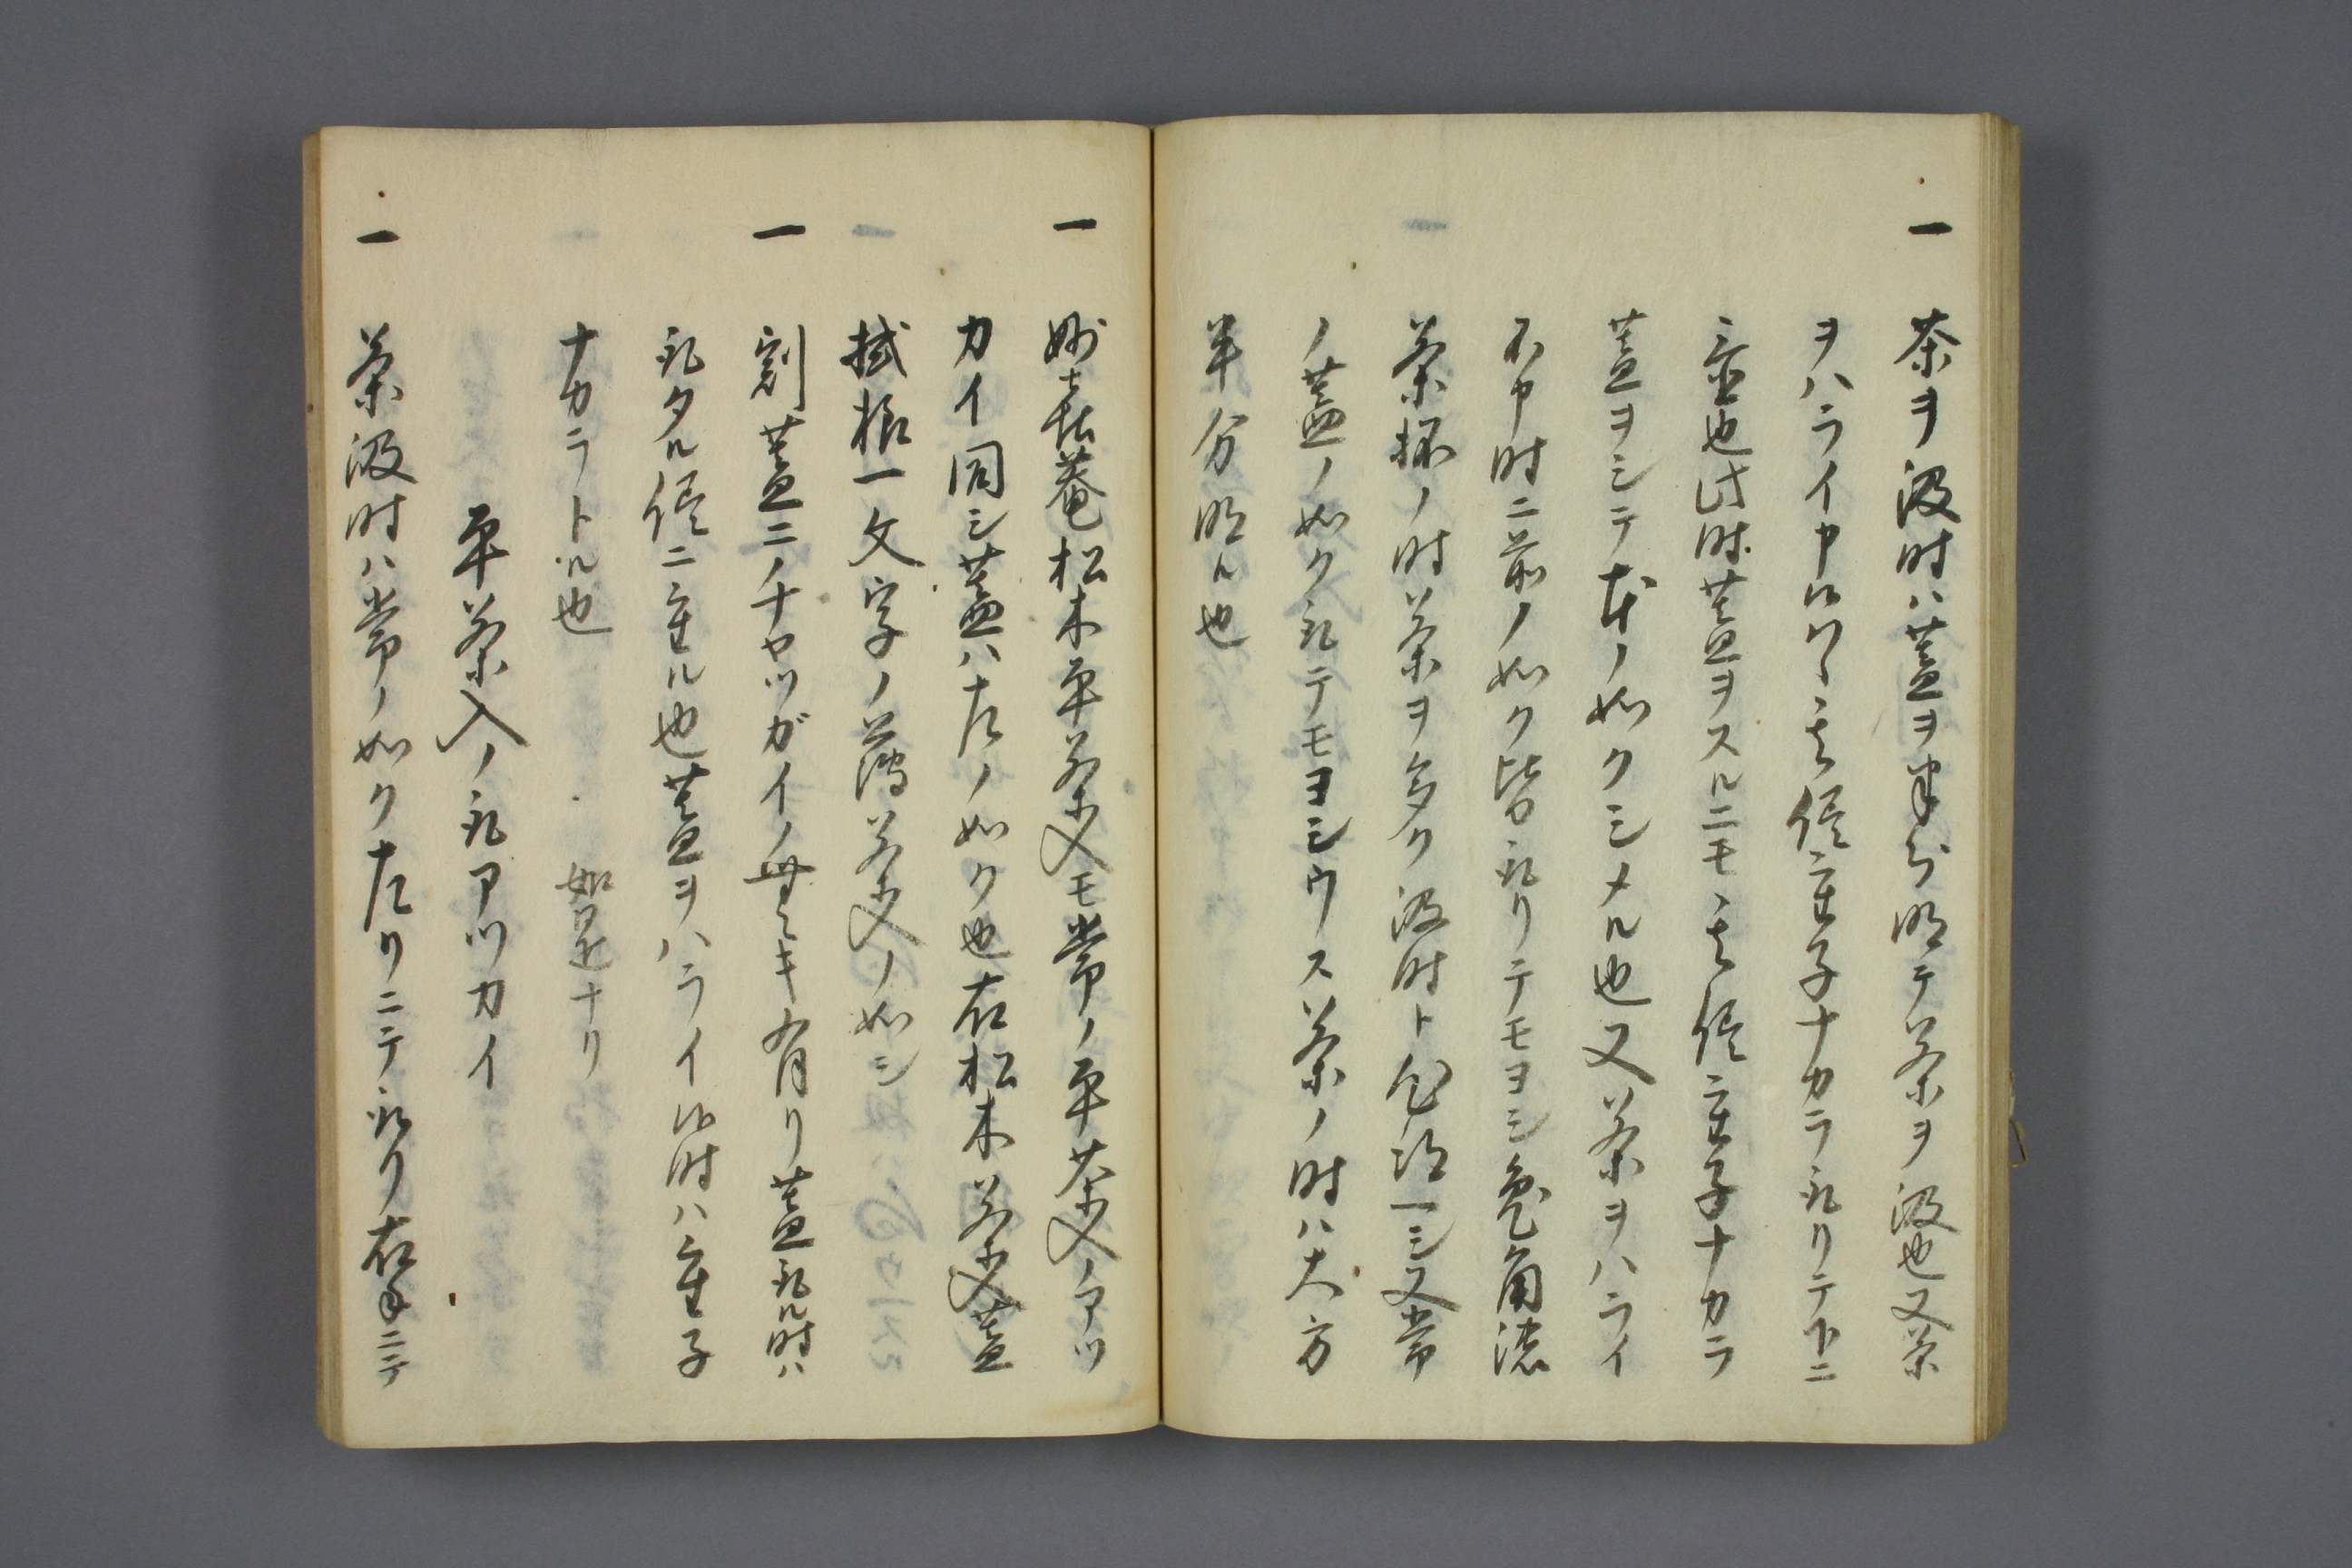 一 茶ヲ汲時ハ蓋ヲ半分明テ茶ヲ汲也又茶
ヲハライ申候ハヽ其侭重子ナカラ取リテ下ニ
置也此時蓋ヲスルニモ其侭重子ナカラ
蓋ヲシテ本ノ如クシメル也又茶ヲハライ
不申時ニ前ノ如ク皆取リテモヨシ兔角濃
茶杯ノ時茶ヲ多ク汲時ト心得ヘシ又常
ノ蓋ノ如ク取テモヨシウス茶ノ時ハ大方
半分明ル也
一 妙喜菴松木平茶入モ常ノ平茶入ノアツ
カイ同シ蓋ハ左ノ如ク也右松木茶入蓋
拭様一文字ノ薄茶入ノ如シ
一 割蓋ニノナヤツガイノ無キ有リ蓋取ル時ハ
取タル侭ニ重ル也蓋ヲハライ候時ハ重子
ナカラトル也 如是ナリ
平茶入ノ取アツカイ
一 茶汲時ハ常ノ如ク左リニテ取リ右手ニテ